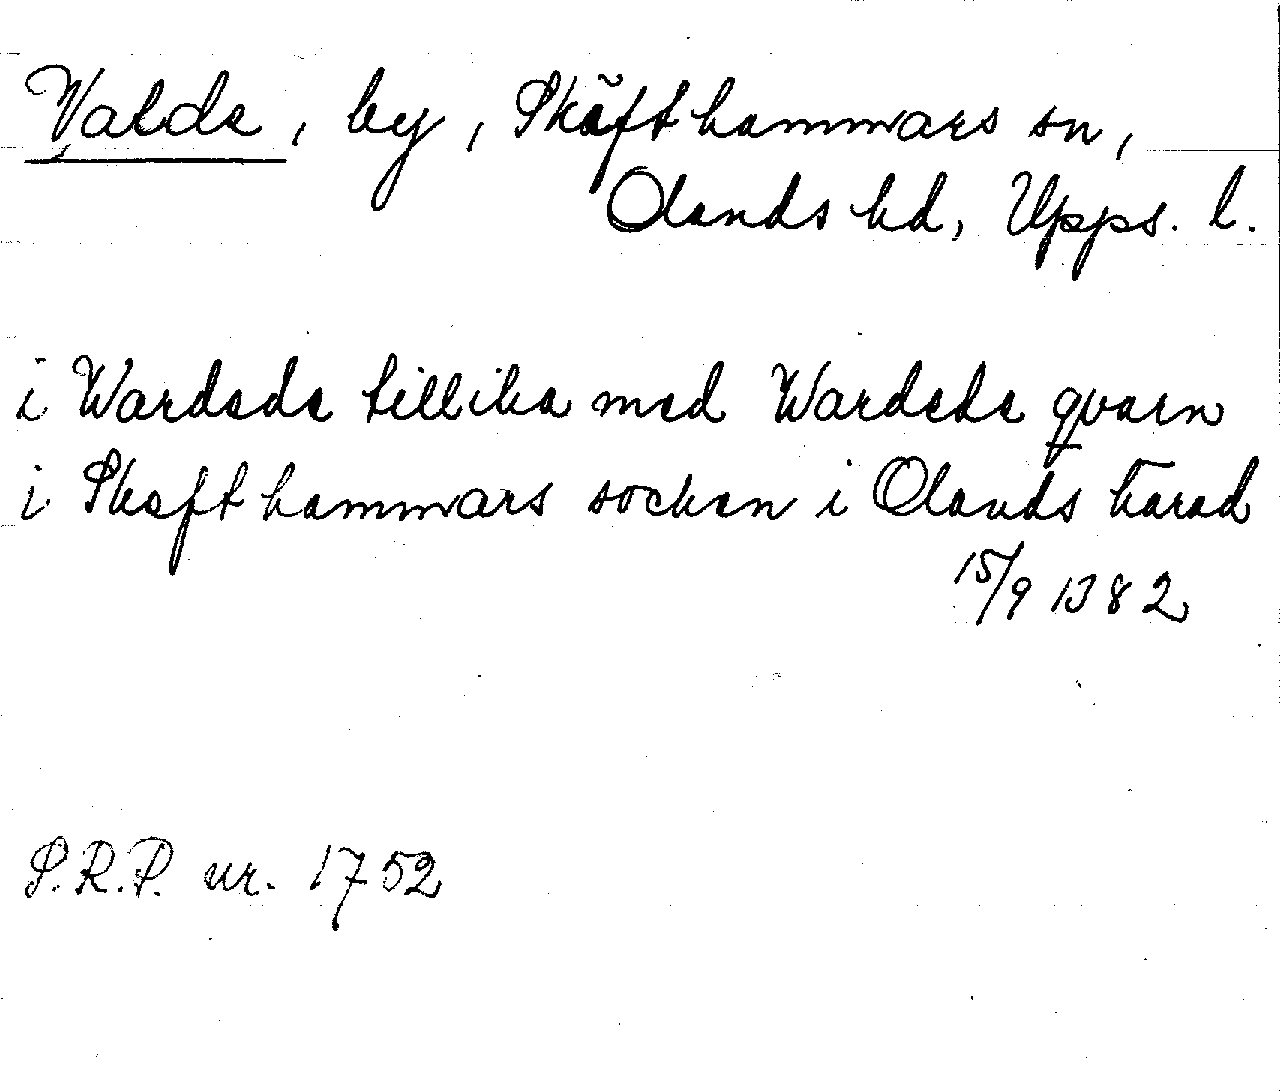 Valde, by, Skäfthammars sn,
Olands hd, Upps. l.
i Wardede tillika med Wardede qvarn
i Skefthammars socken i Olands härad
15/9 1382
S.R.P. nr. 1752